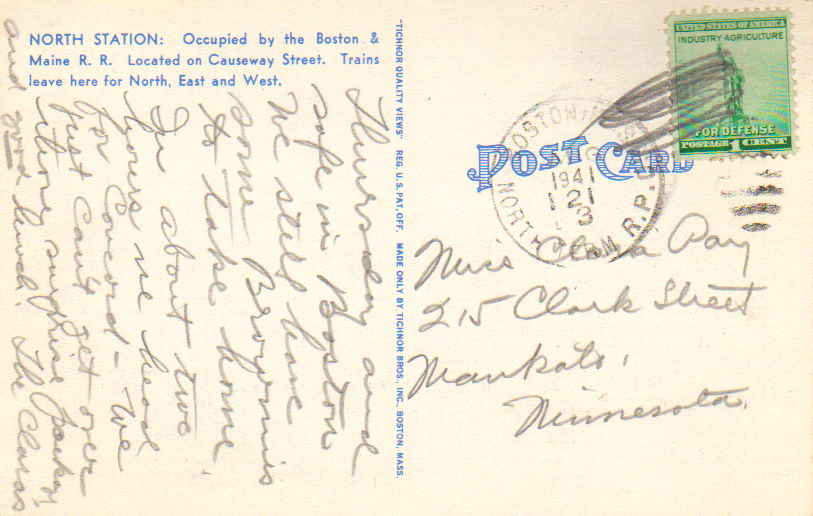 NORTH STATION: Occupied by the Boston &
Maine R. R. Located on Causeway Street. Trains
leave here for North, East and West.
Thursday and
safe in Boston
We still have
some Brownies
to take home.
In about two
hours we head
for Concord - We
just can't get over
those surprise packages
and good lunch. The Claras
"TICHNOR QUALITY VIEWS" REG. U. S. PAT. OFF. MADE ONLY BY TICHNOR BROS., INC., BOSTON, MASS.
POST CARD
UNITED STATES OF AMERICA
INDUSTRY·AGRICULTURE
FOR DEFENSE
POSTAGE 1 CENT
BOSTON
1941
21
3
NORTH
R.P.O.
Miss Clara Pay
215 Clark Street
Mankato,
Minnesota.